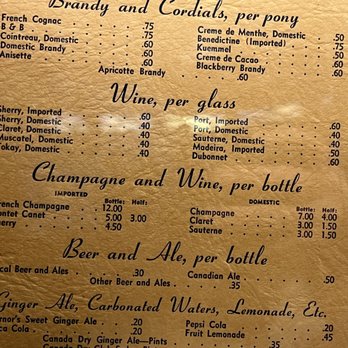 Brandy and Cordials, per pony
French Cognac .75
B & B .75
Cointreau, Domestic .60
Domestic Brandy .60
Anisette .60
Creme de Menthe, Domestic .50
Benedictine (Imported) .75
Kuemmel .60
Creme de Cacao .60
Blackberry Brandy .60
Apricotte Brandy .60
Wine, per glass
Sherry, Imported .60
Sherry, Domestic .40
Claret, Domestic .40
Muscatel, Domestic .40
Tokay, Domestic .40
Port, Imported .60
Port, Domestic .40
Sauterne, Domestic .40
Madeira, Imported .60
Dubonnet .60
Champagne and Wine, per bottle
IMPORTED
Bottle: Half:
French Champagne 12.00
Pontet Canet 5.00 3.00
Sherry
DOMESTIC
Bottle: Half:
Champagne 7.00 4.00
Claret 3.00 1.50
Sauterne 3.00 1.50
Beer and Ale, per bottle
Local Beer and Ales .30
Canadian Ale .50
Other Beer and Ales .35
Ginger Ale, Carbonated Waters, Lemonade, Etc.
Vernor's Sweet Ginger Ale .20
Coca Cola .20
Pepsi Cola .20
Fruit Lemonade .45
Canada Dry Ginger Ale—Pints .35
Canada Dry